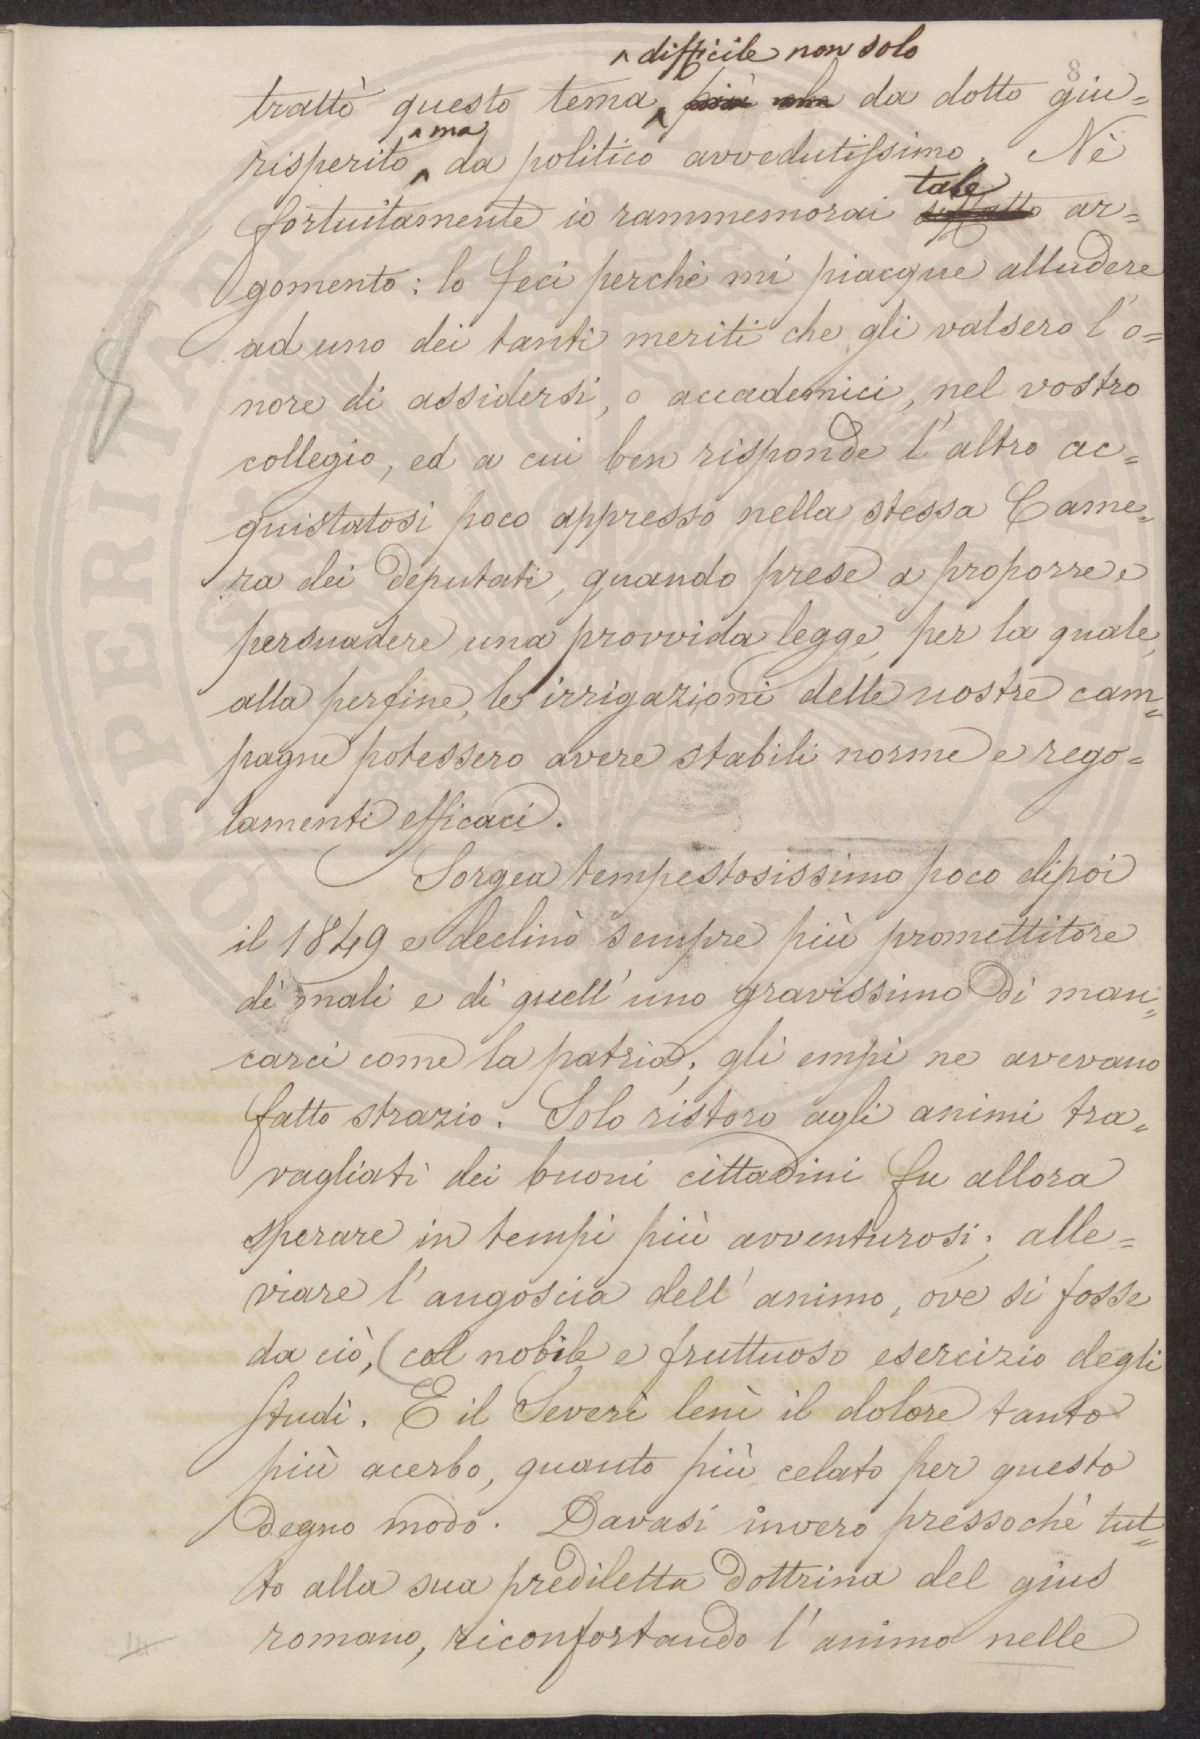 difficile non solo
8
trattò questo tema, più che da dotto giu=
ma
risperito da politico avvedutissimo. Nè
tale
fortuitamente io rammemorai siffatto ar=
gomento: lo feci perchè mi piacque alludere
ad uno dei tanti meriti che gli valsero l'o=
nore di assidersi, o accademici, nel vostro
collegio, ed a cui ben risponde l'altro ac=
quistatosi poco appresso nella stessa Came=
ra dei deputati, quando prese a proporre e
persuadere una provvida legge, per la quale,
alla perfine, le irrigazioni delle nostre cam=
pagne potessero avere stabili norme e rego=
lamenti efficaci.
Sorgea tempestosissimo poco dipoi
il 1849 e declinò sempre più promettitore
di mali e di quell'uno gravissimo di man=
carci come la patria; gli empi ne avevano
fatto strazio. Solo ristoro agli animi tra=
vagliati dei buoni cittadini fu allora
sperare in tempi più avventurosi; alle=
viare l'angoscia dell'animo, ove si fosse
da ciò, (col nobile e fruttuoso esercizio degli
studi. E il Severi lenì il dolore tanto
più acerbo, quanto più celato per questo
degno modo. Davasi invero pressochè tut=
to alla sua prediletta dottrina del gius
romano, riconfortando l'animo nelle
8
14
SPERITAT